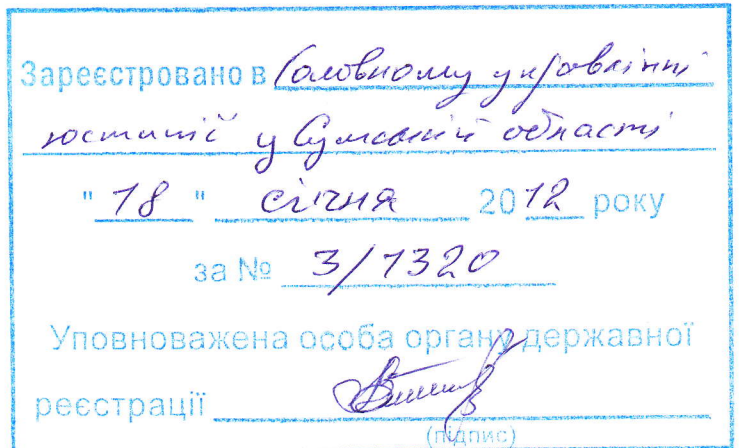 Зареєстровано в Головному управлінні
юстиції у Сумській області
"18" січня 2012 року
за № 3/1320
Уповноважена особа органу державної
реєстрації
(підпис)